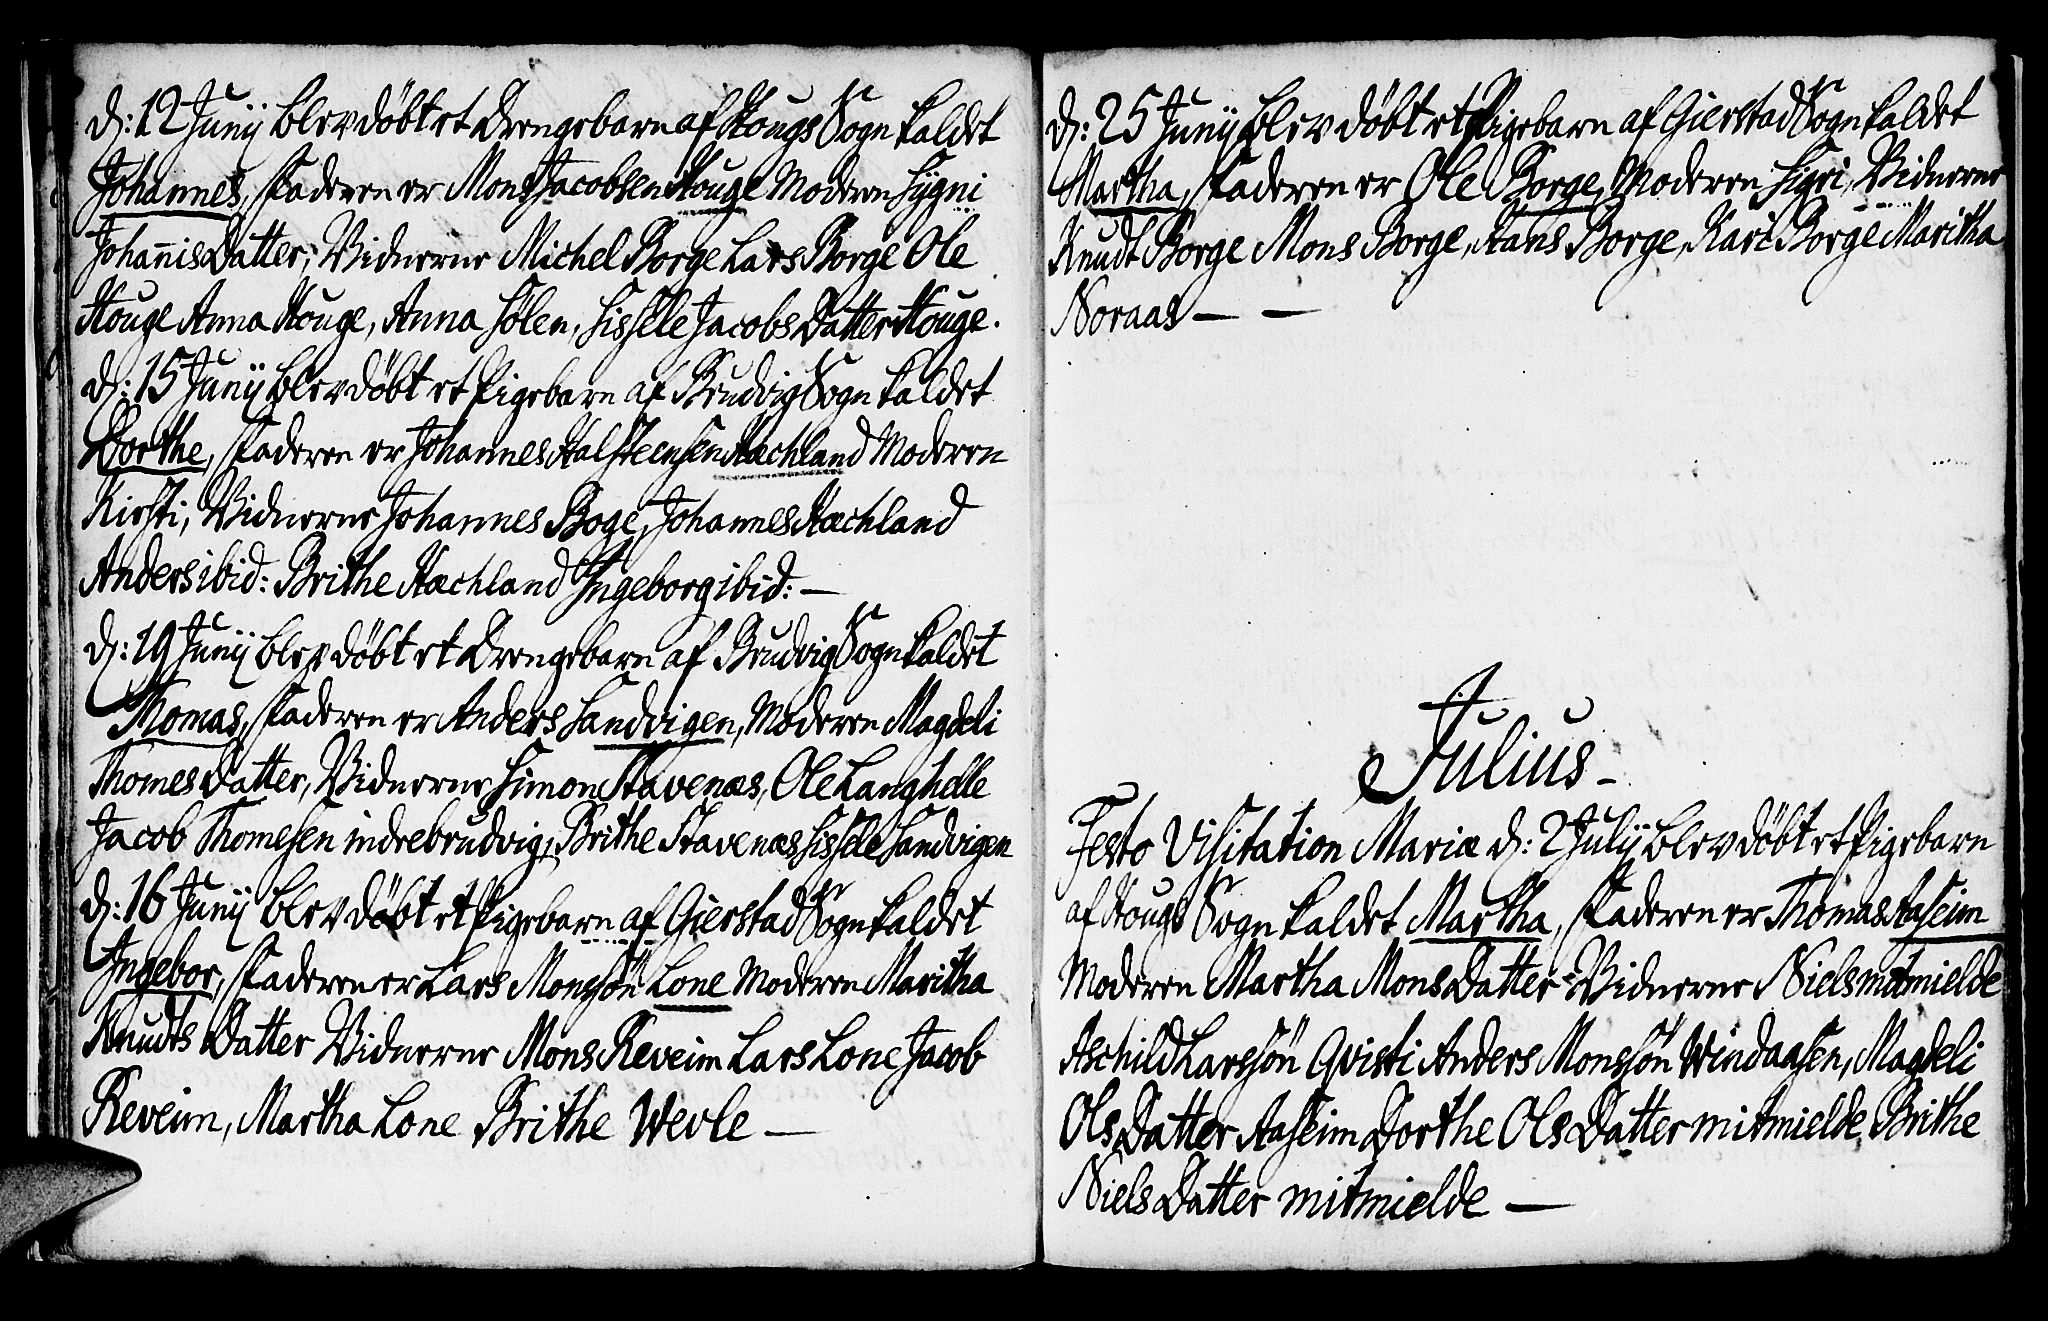 d: 12 Junij blev döbt et Drengebarn af Hougs Sogn kaldet
Johannes, Faderen er Mons Jacobsen Houge Moderen Sygni
Johannis Datter, Vidnerne Michel Borge Lars Borge Ole
Houge Anna Houge, Anna Sølen, Sissele Jacobs Datter Houge.
d: 15 Junij blev döbt et Pigebarn af Brudvig Sogn kaldet
Dorthe, Faderen er Johannes Halsteensen Hæchland Moderen
Kirsti, Vidnerne Johannes Boge, Johannes Hæchland
Anders ibid: Brithe Hæchland Ingeborg ibid: —
d: 19 Junij blev döbt et Drengebarn af Brudvig Sogn kaldet
Thomas, Faderen er Anders Sandvigen, Moderen Magdeli
Thomes Datter, Vidnerne Simon Stavenæs, Ole Langhelle
Jacob Thomesen indrebrudvig, Brithe Stavenæs Sissele Sandvigen
d: 16 Junij blev döbt et Pigebarn af Gierstad Sogn kaldet
Ingebor, Faderen er Lars Monssön Lone Moderen Maritha
Knudts Datter Vidnerne Mons Reveim Lars Lone Jacob
Reveim, Martha Lone Brithe Wevle —
d: 25 Junij blev döbt et Pigebarn af Gierstad Sogn kaldet
Martha, Faderen er Ole Borge, Moderen Sigri, Vidnerne
Knudt Borge Mons Borge, Hans Borge, Kari Borge Maritha
Noraas — —
Julius —
Festo Visitation Mariæ d: 2 Julij blev döbt et Pigebarn
af Hougs Sogn kaldet Martha, Faderen er Thomas Aaseim
Moderen Martha Mons Datter Vidnerne Niels mitmielde
Aschild Larssön Qvisti Anders Monssön Windaasen, Magdeli
Ols Datter Aaseim Dorthe Ols Datter mitmielde Brithe
Niels Datter mitmielde —